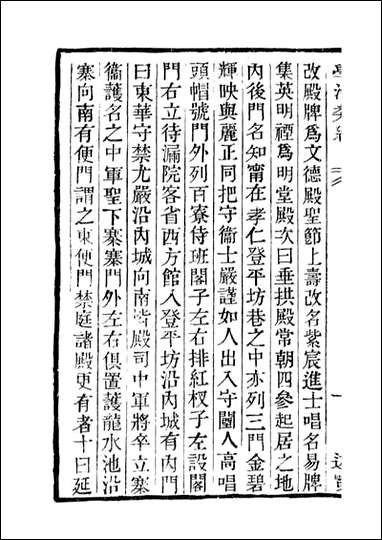 改殿牌爲文德殿聖節上壽改名紫宸進士唱名易牌
集英明禋爲明堂殿次曰垂拱殿常朝四參起居之地
內後門名和甯在孝仁登平坊巷之中亦列三門金碧
輝映與麗正同把守衞士嚴謹如人出入守闥人高唱
頭帽號門外列百寮侍班閣子左右排紅杈子左設閣
門右立待漏院客省四方館入登平坊沿內城有內門
曰東華守禁尤嚴沿內城向南皆殿司中軍將卒立寨
衞護名之中軍聖下寨寨門外左右俱置護龍水池沿
寨向南有便門謂之東便門禁庭諸殿更有者十曰延